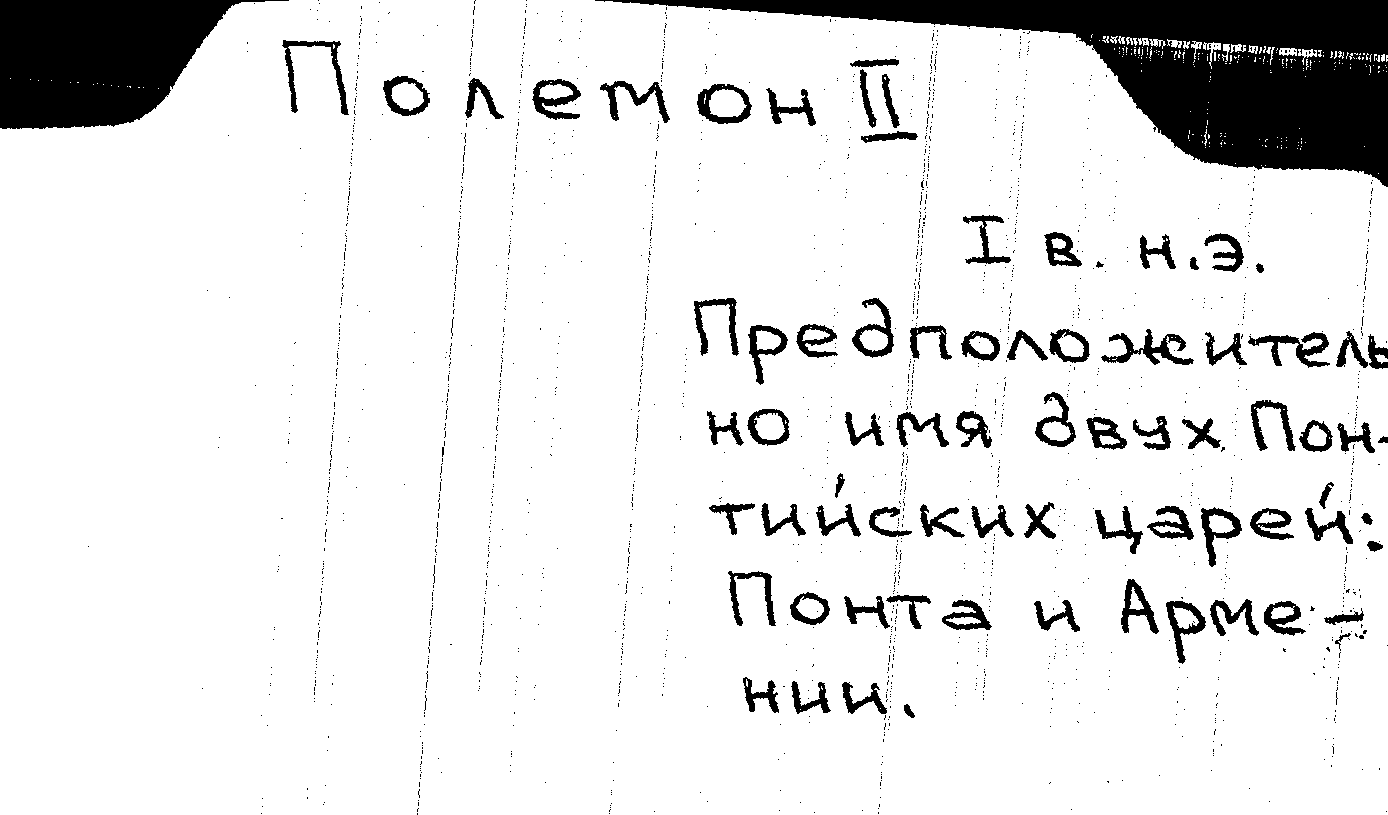 Полемон II
I в. н.э.
Предположитель
но имя двух Пон-
тийских царей:
Понта и Арме-
нии.